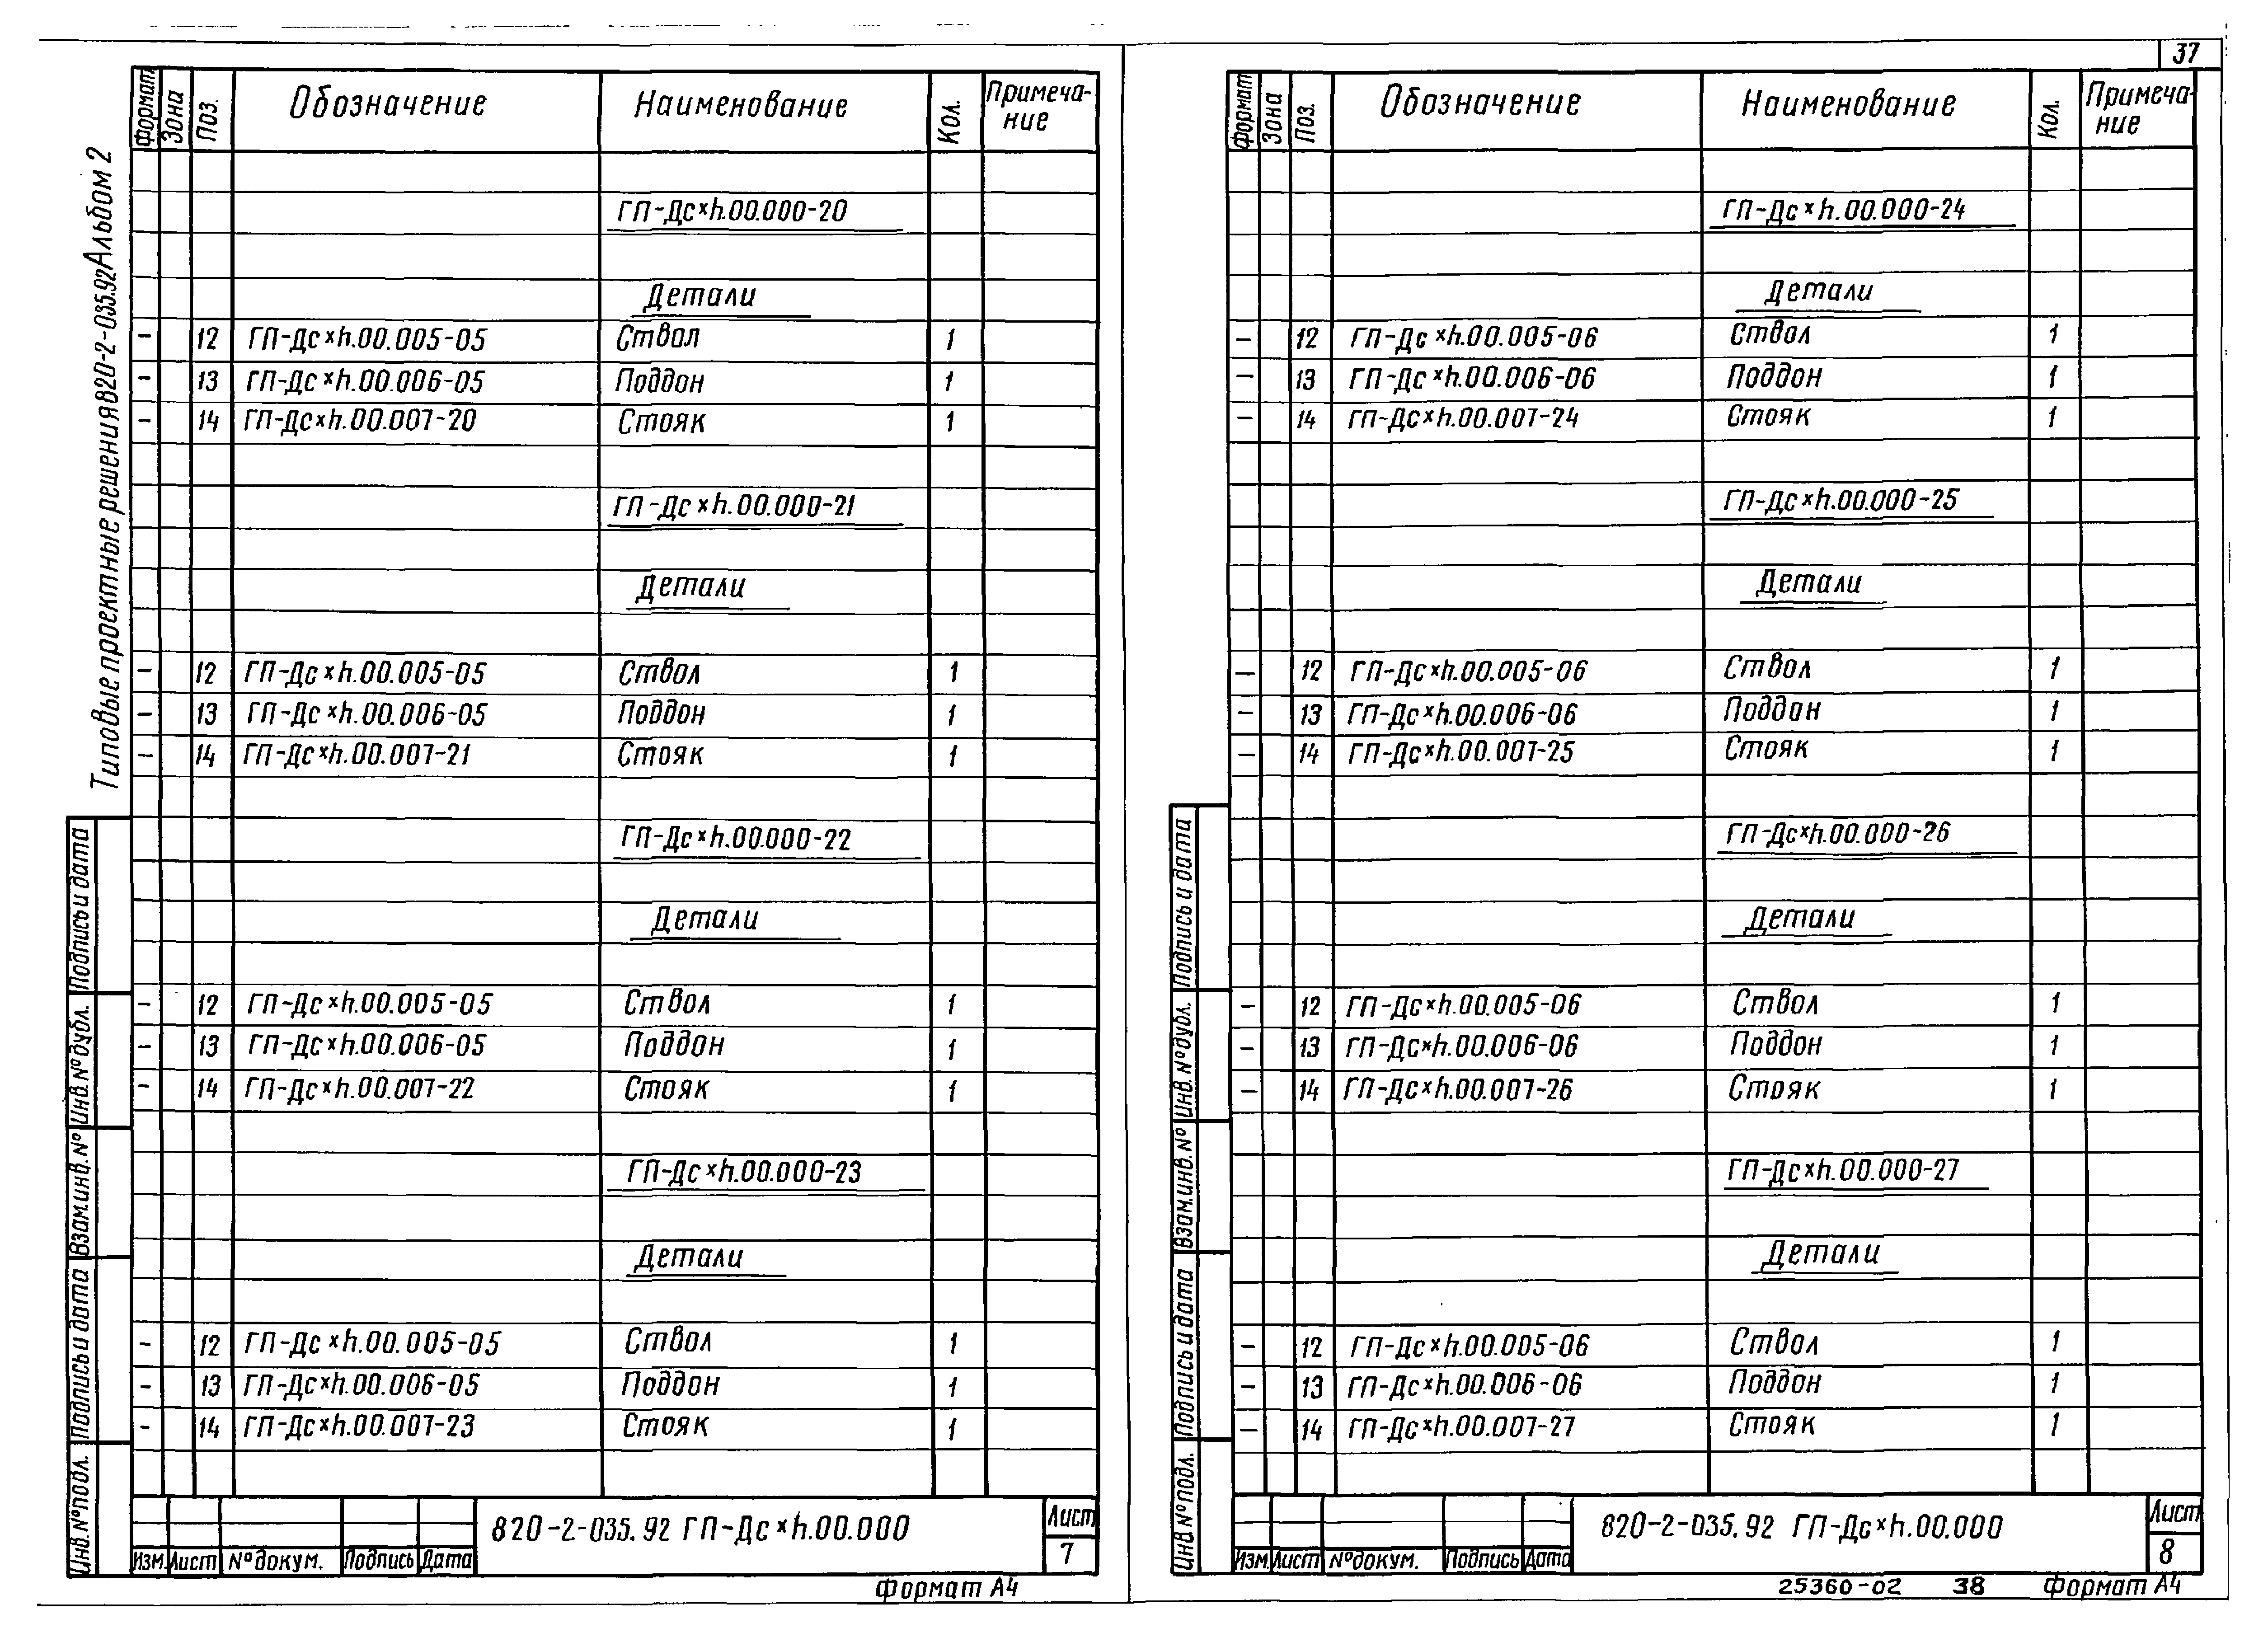 37
Типовые проектные решения 820-2-035.92 Альбом 2
Формат Зона Поз. Обозначение Наименование Кол. Примеча-ние
ГП-Дс×h.00.000-20
Детали
– 12 ГП-Дс×h.00.005-05 Ствол 1
– 13 ГП-Дс×h.00.006-05 Поддон 1
– 14 ГП-Дс×h.00.007-20 Стояк 1
ГП-Дс×h.00.000-21
Детали
– 12 ГП-Дс×h.00.005-05 Ствол 1
– 13 ГП-Дс×h.00.006-05 Поддон 1
– 14 ГП-Дс×h.00.007-21 Стояк 1
ГП-Дс×h.00.000-22
Детали
– 12 ГП-Дс×h.00.005-05 Ствол 1
– 13 ГП-Дс×h.00.006-05 Поддон 1
– 14 ГП-Дс×h.00.007-22 Стояк 1
ГП-Дс×h.00.000-23
Детали
– 12 ГП-Дс×h.00.005-05 Ствол 1
– 13 ГП-Дс×h.00.006-05 Поддон 1
– 14 ГП-Дс×h.00.007-23 Стояк 1
Подпись и дата
Инв.№дубл.
Взам.инв.№
Подпись и дата
Инв.№подл.
Изм. Лист №докум. Подпись Дата
820-2-035.92 ГП-Дс×h.00.000
Лист
7
Формат А4
Формат Зона Поз. Обозначение Наименование Кол. Примеча-ние
ГП-Дс×h.00.000-24
Детали
– 12 ГП-Дс×h.00.005-06 Ствол 1
– 13 ГП-Дс×h.00.006-06 Поддон 1
– 14 ГП-Дс×h.00.007-24 Стояк 1
ГП-Дс×h.00.000-25
Детали
– 12 ГП-Дс×h.00.005-06 Ствол 1
– 13 ГП-Дс×h.00.006-06 Поддон 1
– 14 ГП-Дс×h.00.007-25 Стояк 1
ГП-Дс×h.00.000-26
Детали
– 12 ГП-Дс×h.00.005-06 Ствол 1
– 13 ГП-Дс×h.00.006-06 Поддон 1
– 14 ГП-Дс×h.00.007-26 Стояк 1
ГП-Дс×h.00.000-27
Детали
– 12 ГП-Дс×h.00.005-06 Ствол 1
– 13 ГП-Дс×h.00.006-06 Поддон 1
– 14 ГП-Дс×h.00.007-27 Стояк 1
Подпись и дата
Инв.№дубл.
Взам.инв.№
Подпись и дата
Инв.№подл.
Изм. Лист №докум. Подпись Дата
820-2-035.92 ГП-Дс×h.00.000
Лист
8
25360-02 38 Формат А4